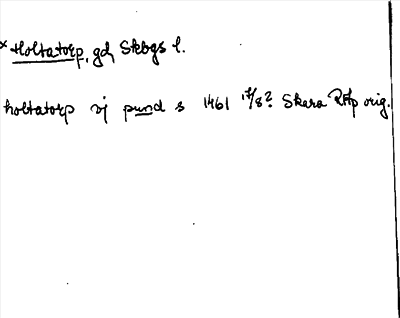 × Holtatorp, gd, Skbgs l.
holtatorp vj pund s 1461 17/8? Skara RAp orig.